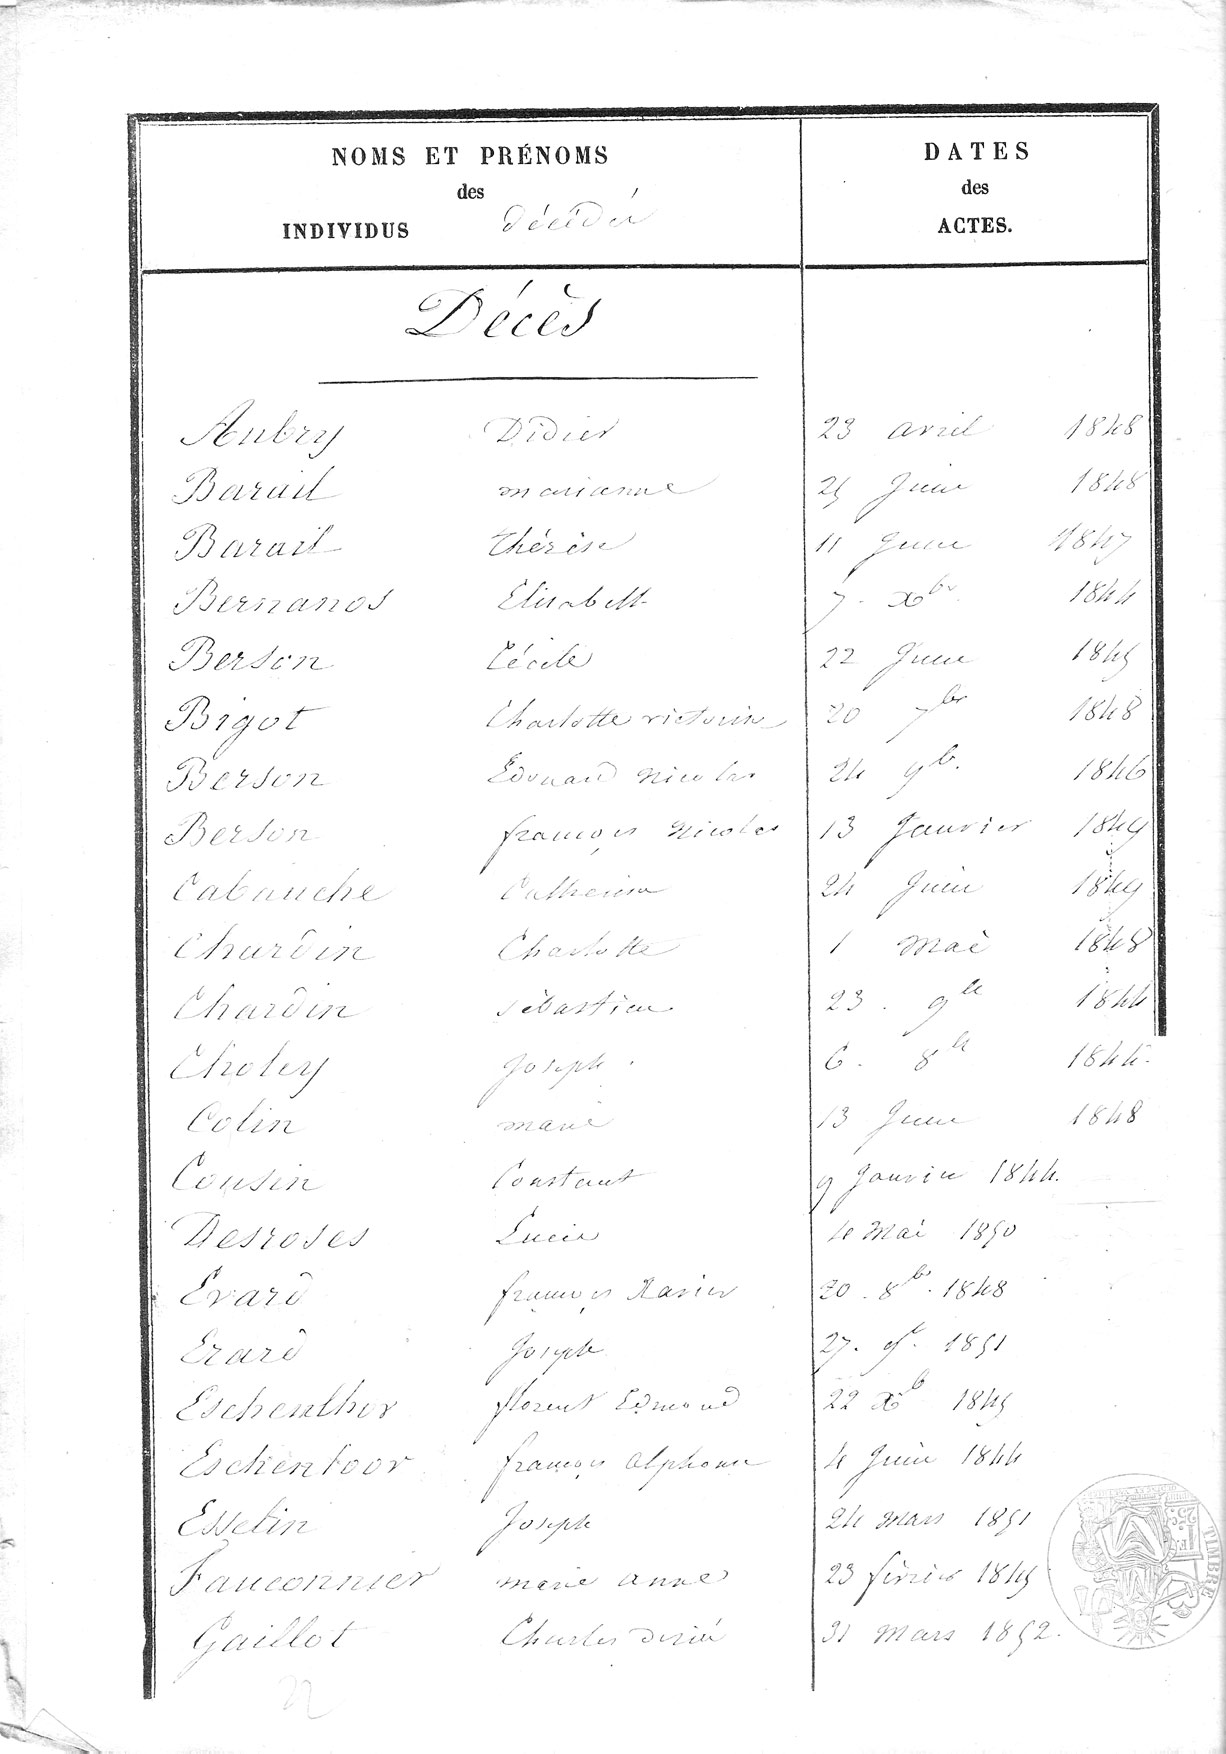 NOMS ET PRÉNOMS
des
INDIVIDUS décédés
DATES
des
ACTES.
Décès
Aubry Didier 23 avril 1848
Barail marianne 25 Juin 1848
Barail thérèse 11 Juin 1847
Bernanos Elisabeth 7. Xbr. 1844
Berson Cécile 22 Juin 1845
Bigot Charlotte victorine 20 7br 1848
Berson Edouard Nicolas 24 9b. 1846
Berson françois Nicolas 13 Janvier 1849
Cabauche Catherine 24 Juin 1849
Chardin Charlotte 1 Mai 1848
Chardin sébastien 23. 9bre 1844
Choley Joseph. 6. 8bre 1844.
Colin marie 13 Juin 1848
Cousin Constant 9 Janvier 1844.
Desroses Lucie 4 Mai 1850
Evard françois Xavier 20. 8br. 1848
Erard Joseph 27. 1851
Eschenlhor florent Edmond 22 Xb 1845
Eschenloor françois alphonse 4 Juin 1844
Esselin Joseph 24 mars 1851
Fauconnier marie anne 23 février 1845
Gaillot Charles désiré 31 Mars 1852.
TIMBRE
25 c.